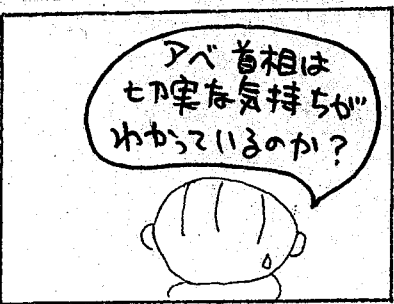 アベ首相は
切実な気持ちが
わかっているのか?